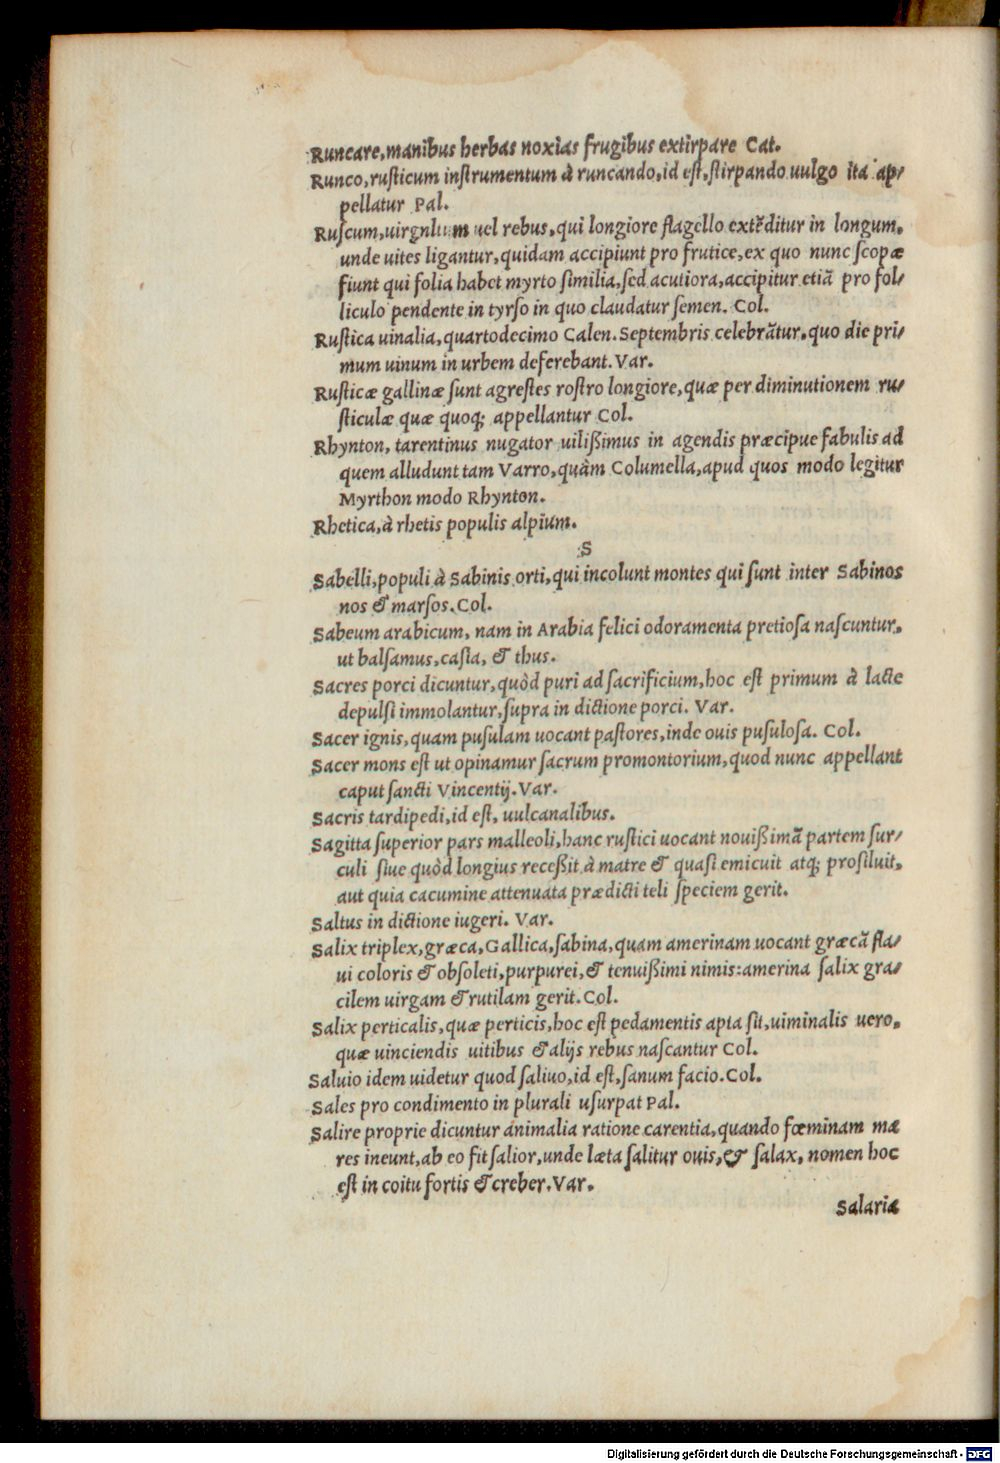 Runcare,manibus herbas noxias frugibus extirpare Cat.
Runco,rusticum instrumentum à runcando,id est,stirpando uulgo ita ap-
pellatur Pal.
Ruscum, uel rebus,qui longiore flagello extẽditur in longum,
unde uites ligantur,quidam accipiunt pro frutice,ex quo nunc scopæ
fiunt qui folia habet myrto similia,sed acutiora,accipitur etiã pro fol-
liculo pendente in tyrso in quo claudatur semen. Col.
Rustica uinalia,quartodecimo Calen.Septembris celebrãtur,quo die pri-
mum uinum in urbem deferebant.Var.
Rusticæ gallinæ sunt agrestes rostro longiore,quæ per diminutionem ru-
sticulæ quæ quoq; appellantur Col.
Rhynton, tarentinus nugator uilißimus in agendis præcipue fabulis ad
quem alludunt tam Varro,quàm Columella,apud quos modo legitur
Myrthon modo Rhynton.
Rhetica,à rhetis populis alpium.
S
Sabelli,populi à Sabinis orti,qui incolunt montes qui sunt inter Sabinos
nos & marsos.Col.
Sabeum arabicum, nam in Arabia felici odoramenta pretiosa nascuntur,
ut balsamus,casia, & thus.
Sacres porci dicuntur,quòd puri ad sacrificium,hoc est primum à lacte
depulsi immolantur,supra in dictione porci. Var.
Sacer ignis,quam pusulam uocant pastores,inde ouis pusulosa. Col.
Sacer mons est ut opinamur sacrum promontorium,quod nunc appellant
caput sancti Vincentij.Var.
Sacris tardipedi,id est, uulcanalibus.
Sagitta superior pars malleoli,hanc rustici uocant nouißimã partem sur-
culi siue quòd longius receßit à matre & quasi emicuit atq; prosiluit,
aut quia cacumine attenuata prædicti teli speciem gerit.
Saltus in dictione iugeri. Var.
Salix triplex,græca,Gallica,sabina,quam amerinam uocant græcã fla-
ui coloris & obsoleti,purpurei,& tenuißimi nimis:amerina salix gra-
cilem uirgam & rutilam gerit.Col.
Salix perticalis,quæ perticis,hoc est pedamentis apta sit,uiminalis uero,
quæ uinciendis uitibus & alijs rebus nascantur Col.
Saluio idem uidetur quod saliuo,id est,sanum facio.Col.
Sales pro condimento in plurali usurpat Pal.
Salire proprie dicuntur animalia ratione carentia,quando fœminam ma
res ineunt,ab eo fit salior,unde læta salitur ouis,& salax, nomen hoc
est in coitu fortis & creber.Var.
Salariæ
Digitalisierung gefördert durch die Deutsche Forschungsgemeinschaft - DFG